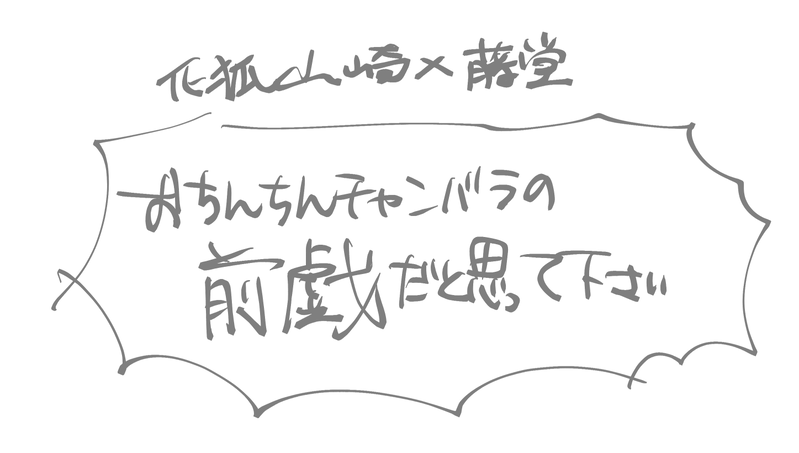 化狐山崎×藤堂
おちんちんチャンバラの
前戯だと思って下さい